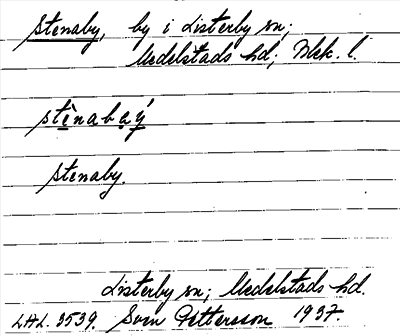 Stenaby, by i Listerby sn;
Medelstads hd; Blek. l.
stènabạý
Stenaby.
Listerby sn; Medelstads hd.
LHL. 3539. Sven Pettersson 1937.